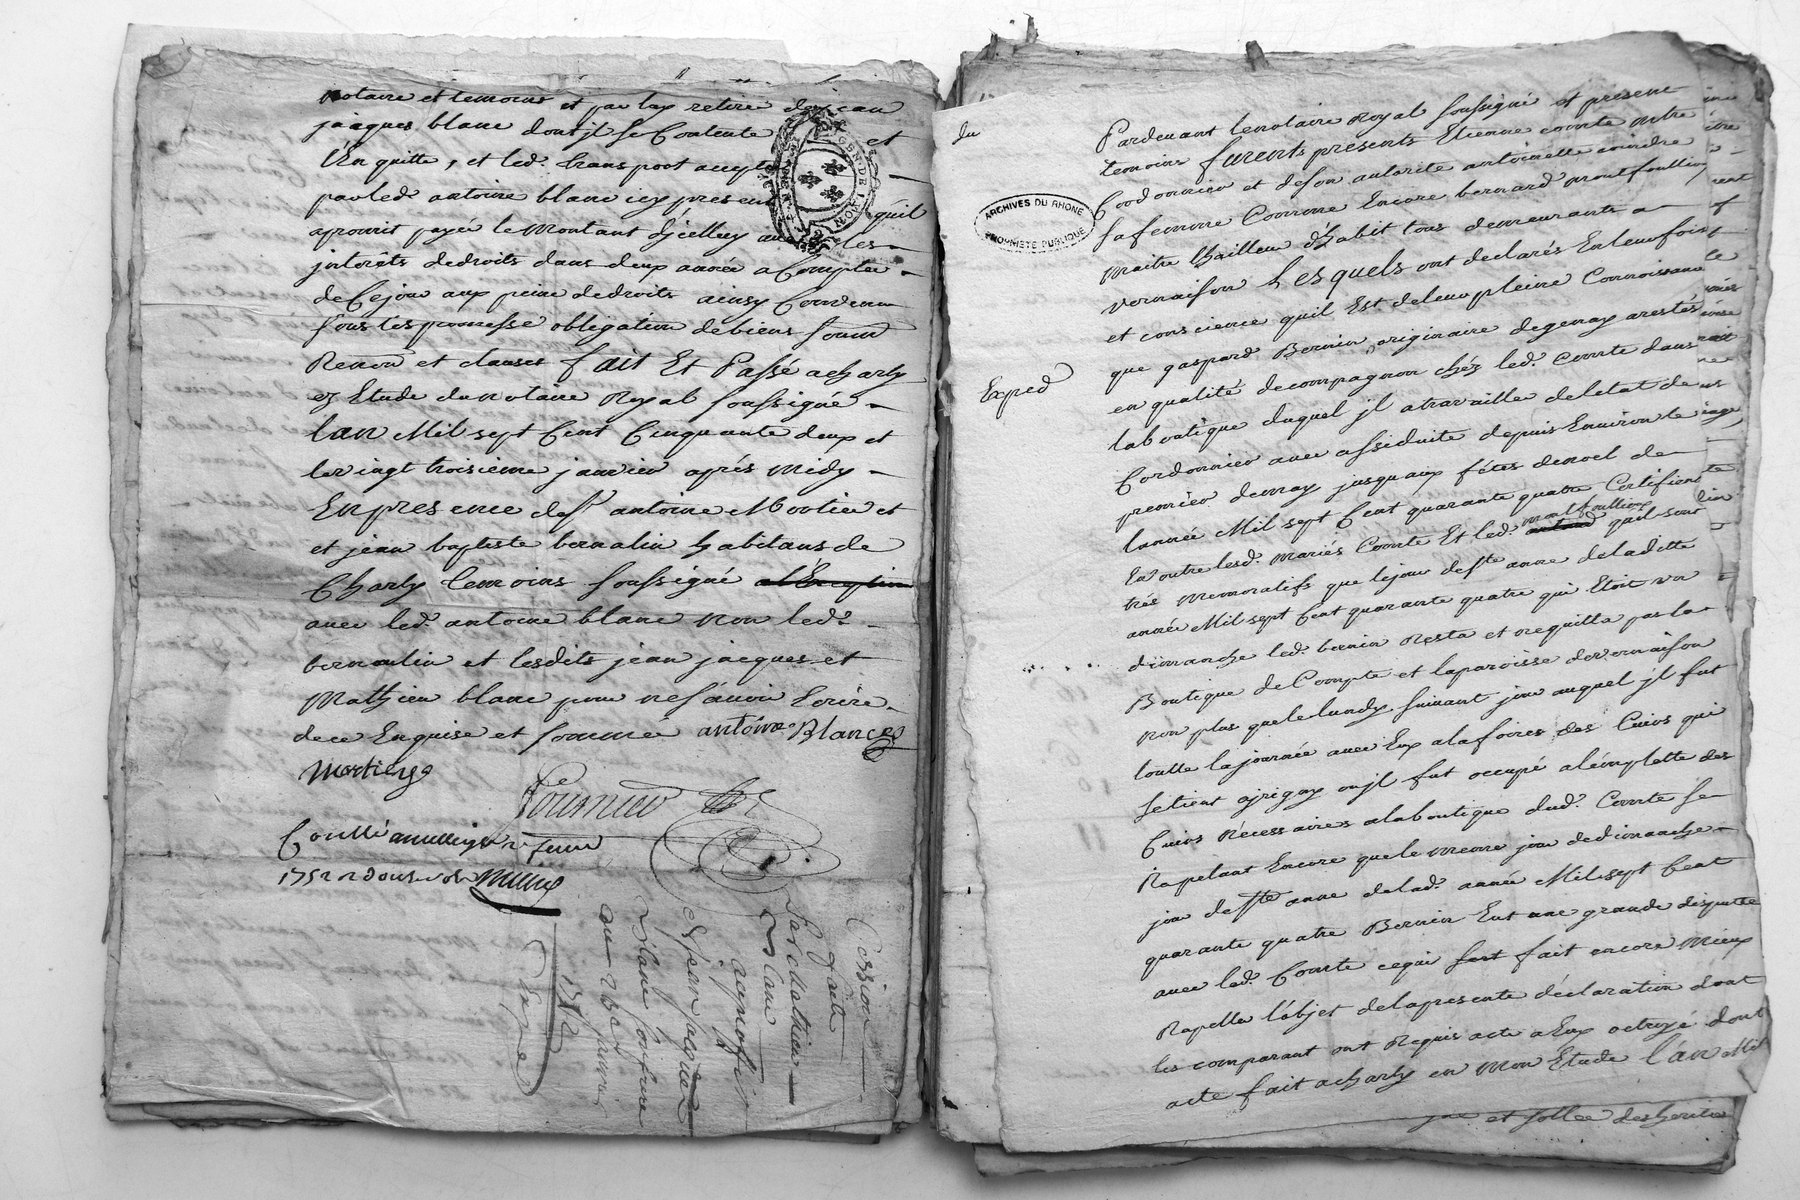 notaire et temoins et par luy retiré de jean
jacques blanc dont jl se Contente et
l'En quitte, et led. transport accepté
par led. antoine blanc icy present qu'il
a promit payer le Montant d'jcelluy aux les
jnterêts de droits dans deux année a Compter
de Ce jour aux peine de droits ainsy Convenu
sous les promesse obligation de biens soum
Renon et clauses fait Et Passé a charly
ez Etude du notaire Royal soussigné
l'an Mil sept Cent Cinquante deux et
le vingt troisieme janvier aprés Midy
En presence de sr. antoine Mortier et
et jean baptiste bernalin habitans de
Charly temoins soussigné
avec led. antoine blanc non led.
bernalin et lesdits jean jacques et
Mathieu blanc pour ne sçavoir Ecrire
de ce Enquise et sommé antoine Blanc
Mortier
Fournier
1752
Cession
faite
par Mathieu
Blanc
et jean jacques
Blanc
du 23 janvier
1752
ARCHIVES DU RHONE
PROPRIETE PUBLIQUE
du
Exped
Pardevant le notaire Royal soussigné et presents
temoins furents presents Etienne comte mtre
Cordonnier et de son autorité antoinette coindre
sa femme Comme Encore bernard montfoulloux
maitre tailleur d'habit tous demeurants a
vernaison Lesquels ont declarés En leur foist
et conscience quil Est de leur pleine Connoissance
que gaspard Bernin originaire de genay arestés
en qualité de compagnon chéz led. Comte dans
la boutique duquel jl a travaillé de letat de
Cordonnier avec assiduite depuis Environ le
premier de may jusquaux fétes de noel de
lannée Mil sept Cent quarante quatre Certifient
En outre lesd. Mariés Comte Et led. montfoulloux quil sont
trés memoratifs que lejour de ste anne de ladite
année Mil sept Cent quarante quatre qui Etoit un
dimanche led. bernin Resta et ne quitta pas la
Boutique de Compte et la paroisse de vernaison
non plus que le lundy suivant jour auquel jl fut
toutte la journée avec Eux a la foires des Cuirs qui
se tient a jrigny ou jl fut occupé a lémplette des
Cuirs Nécessaires a la boutique dud. Comte se
Rapelant Encore que le meme jour de dimanche
jour de ste anne de lad. année Mil sept Cent
quarante quatre Bernin Eut une grande disputte
avec led. Comte ce qui fait encore Mieux
Rapeller l'objet de la presente déclaration dont
les comparant ont Requis acte a Eux octroyé dont
acte fait a charly en mon Etude l'an Mil